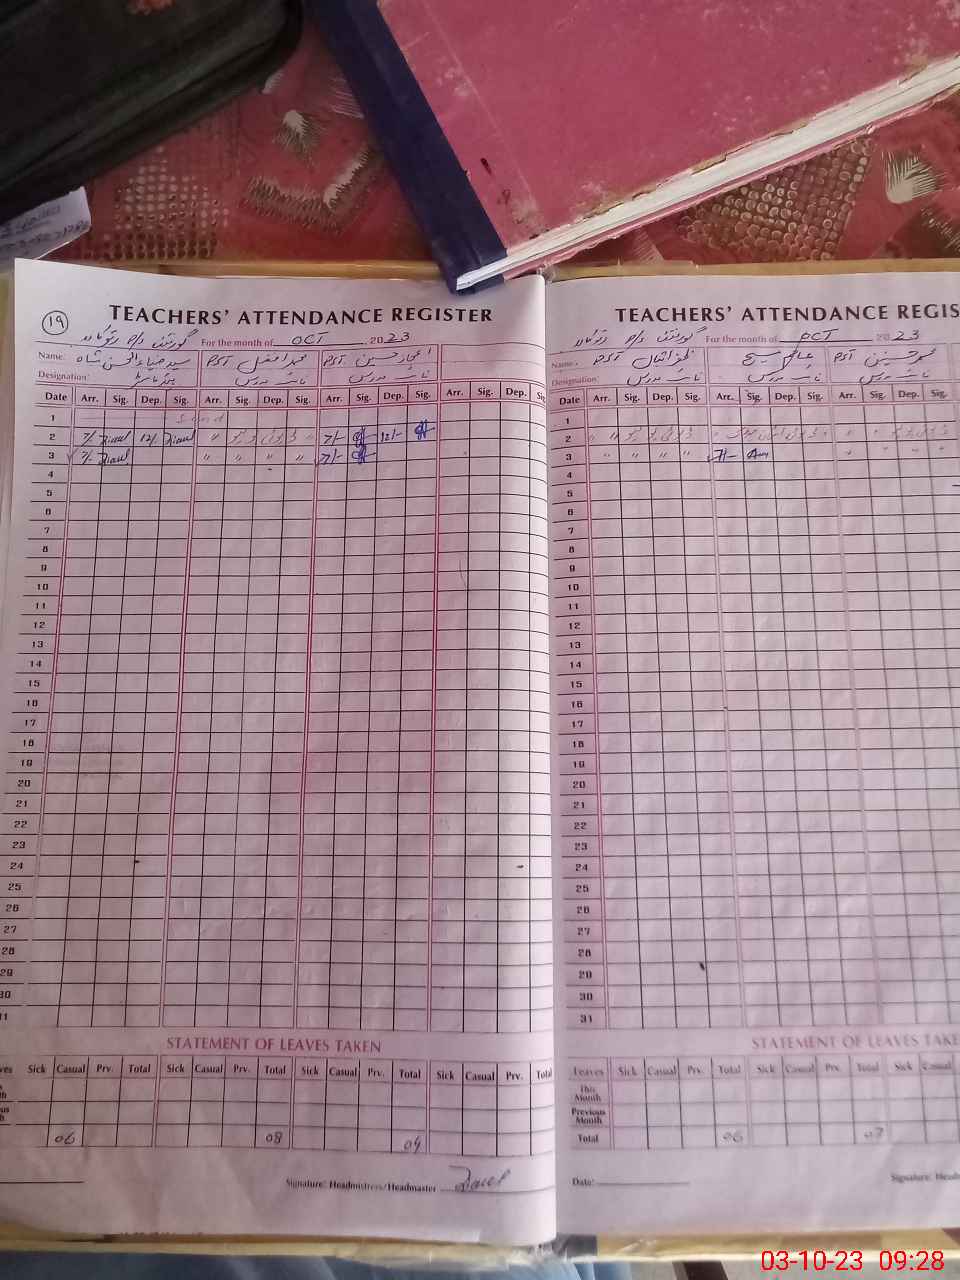 19
TEACHERS' ATTENDANCE REGISTER
For the month of OCT 2023
Name: سید ضیاء الحسن شاہ PST محمد افضل PST اعجاز حسین
Designation:
Date Arr. Sig. Dep. Sig. Arr. Sig. Dep. Sig. Arr. Sig. Dep. Sig. Arr. Sig. Dep. Sig
1
2 7/- 12/- 7/- 12/-
3 7/- " " " " 7/-
4
5
6
7
8
9
10
11
12
13
14
15
16
17
18
19
20
21
22
23
24
25
26
27
28
29
30
31
STATEMENT OF LEAVES TAKEN
Sick Casual Prv. Total Sick Casual Prv. Total Sick Casual Prv. Total Sick Casual Prv. Total
06 08 04
Signature: Headmistress/Headmaster
TEACHERS' ATTENDANCE REGIS
For the month of OCT 2023
Name: PST PST محمد حسین
Designation:
Date Arr. Sig. Dep. Sig. Arr. Sig. Dep. Sig. Arr. Sig. Dep. Sig.
1
2
3 " " " " 7/-
4
5
6
7
8
9
10
11
12
13
14
15
16
17
18
19
20
21
22
23
24
25
26
27
28
29
30
31
STATEMENT OF LEAVES TAKE
Leaves Sick Casual Prv. Total Sick Casual Prv. Total Sick Casual
This Month
Previous Month
Total 06 07
Date: Signature: Head
03-10-23 09:28